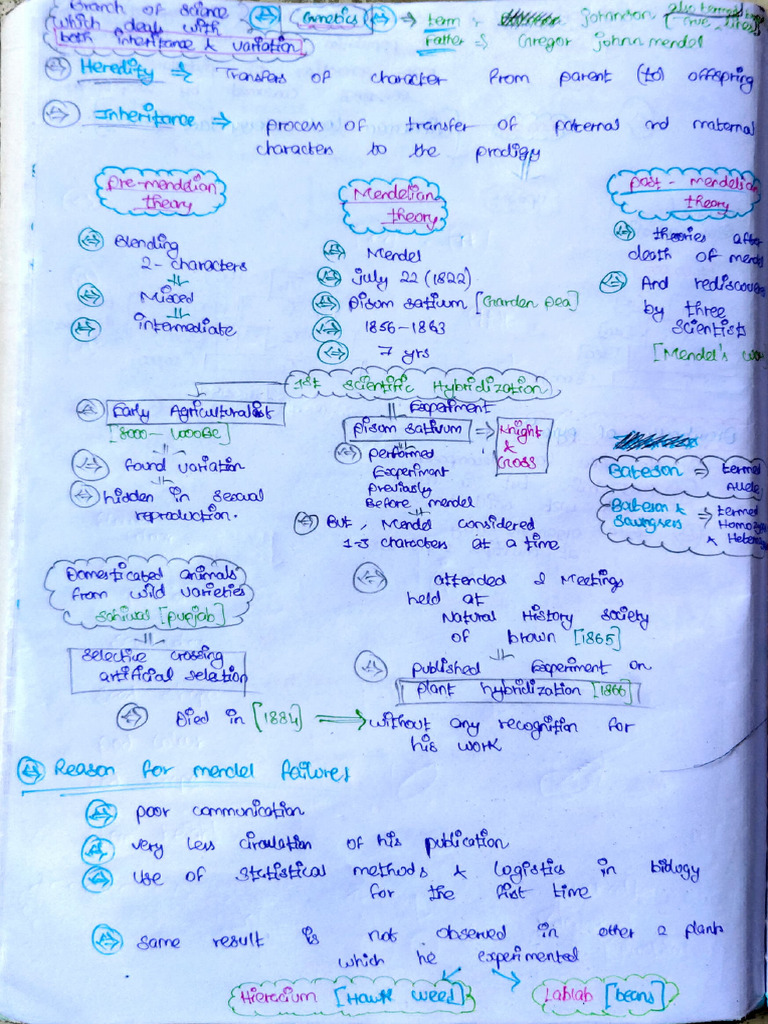 Branch of science
which deals with
both inheritance & variation
Genetics
term : johanson
also termed
Father => Gregor johnn mendel
Heredity => Transfers of character from parent (to) offspring
Inheritance => process of transfer of paternal and maternal
characters to the prodigy
pre-mendelian
theory
Blending
2-characters
Mixed
intermediate
Mendelian
theory
Mendel
july 22 (1822)
pisom sativum [Garden pea]
1856-1863
7 yrs
post-mendelian
theory
theories after
death of
And
by three
scientist
[Mendel's
1st scientific Hybridization
Experiment
Early Agriculturalist
[8000-1000BC]
found variation
hidden in sexual
reproduction.
pisom sativum => Knight
&
Gross
performed
Experiment
previously
Before mendel
But, Mendel considered
1-3 characters at a time
Bateson => termed
Allele
Bateson & => termed
Saungsers
&
Domesticated animals
from wild varieties
sahiwal [punjab]
selective crossing
artificial selection
attended 2 Meetings
held at
Natural History society
of brown [1865]
published Experiment on
plant hybridization [1866]
Died in [1884] => without any recognition for
his work
Reason for mendel failures
poor communication
very less circulation of his publication
use of statistical methods & logistics in biology
for the fist time
same result is not observed in other 2 plant
which he experimented
Hieracium [Hawk weed]
Lablab [beans]